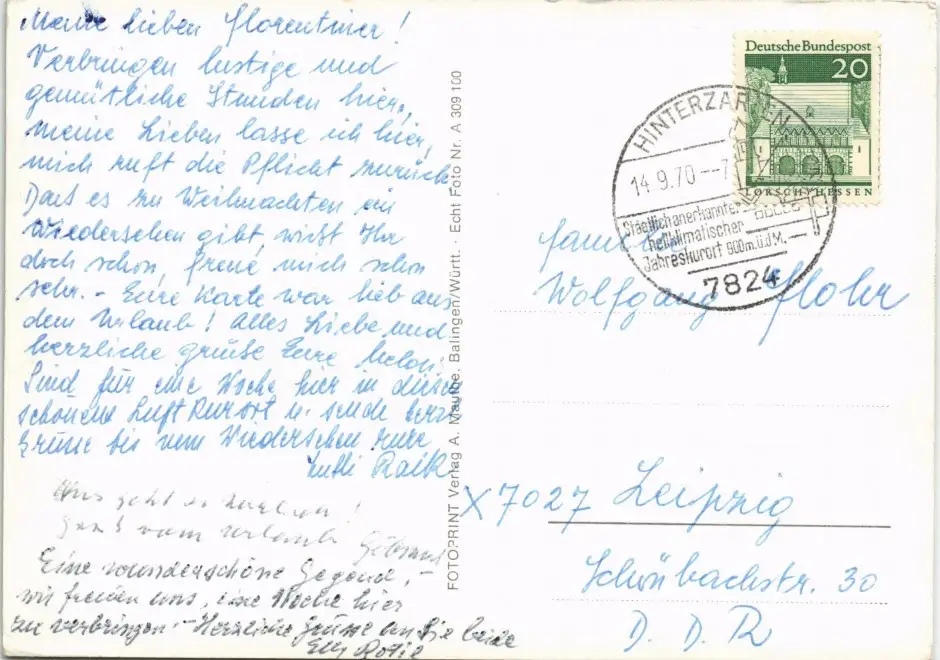 Meine lieben Florentiner!
Verbringen lustige und
gemütliche Stunden hier,
meine Lieben lasse ich hier,
mich ruft die Pflicht zurück
Dass es zu Weihnachten ein
Wiedersehen gibt, wißt Ihr
doch schon, freue mich schon
sehr. - Eure Karte war lieb aus
dem Urlaub! Alles Liebe und
herzliche Grüße Eure
Sind für eine Woche hier in diesem
schönen Luftkurort u. sende herzl.
Grüsse bis zum Wiedersehen Eure
vom Urlaub
Eine wunderschöne Gegend, -
wir freuen uns, eine Woche hier
zu verbringen. - Herzliche Grüsse an Sie beide
Elly
FOTOPRINT Verlag A. Mauthe, Balingen/Württ. · Echt Foto Nr. A 309 100
Deutsche Bundespost
20
LORSCH/HESSEN
HINTERZARTEN
14.9.70
Staatlich anerkannter
heilklimatischer
Jahreskurort 900m.ü.d.M.
7824
Familie
Wolfgang Flohr
X 7027 Leipzig
Schönbachstr. 30
D. D. R